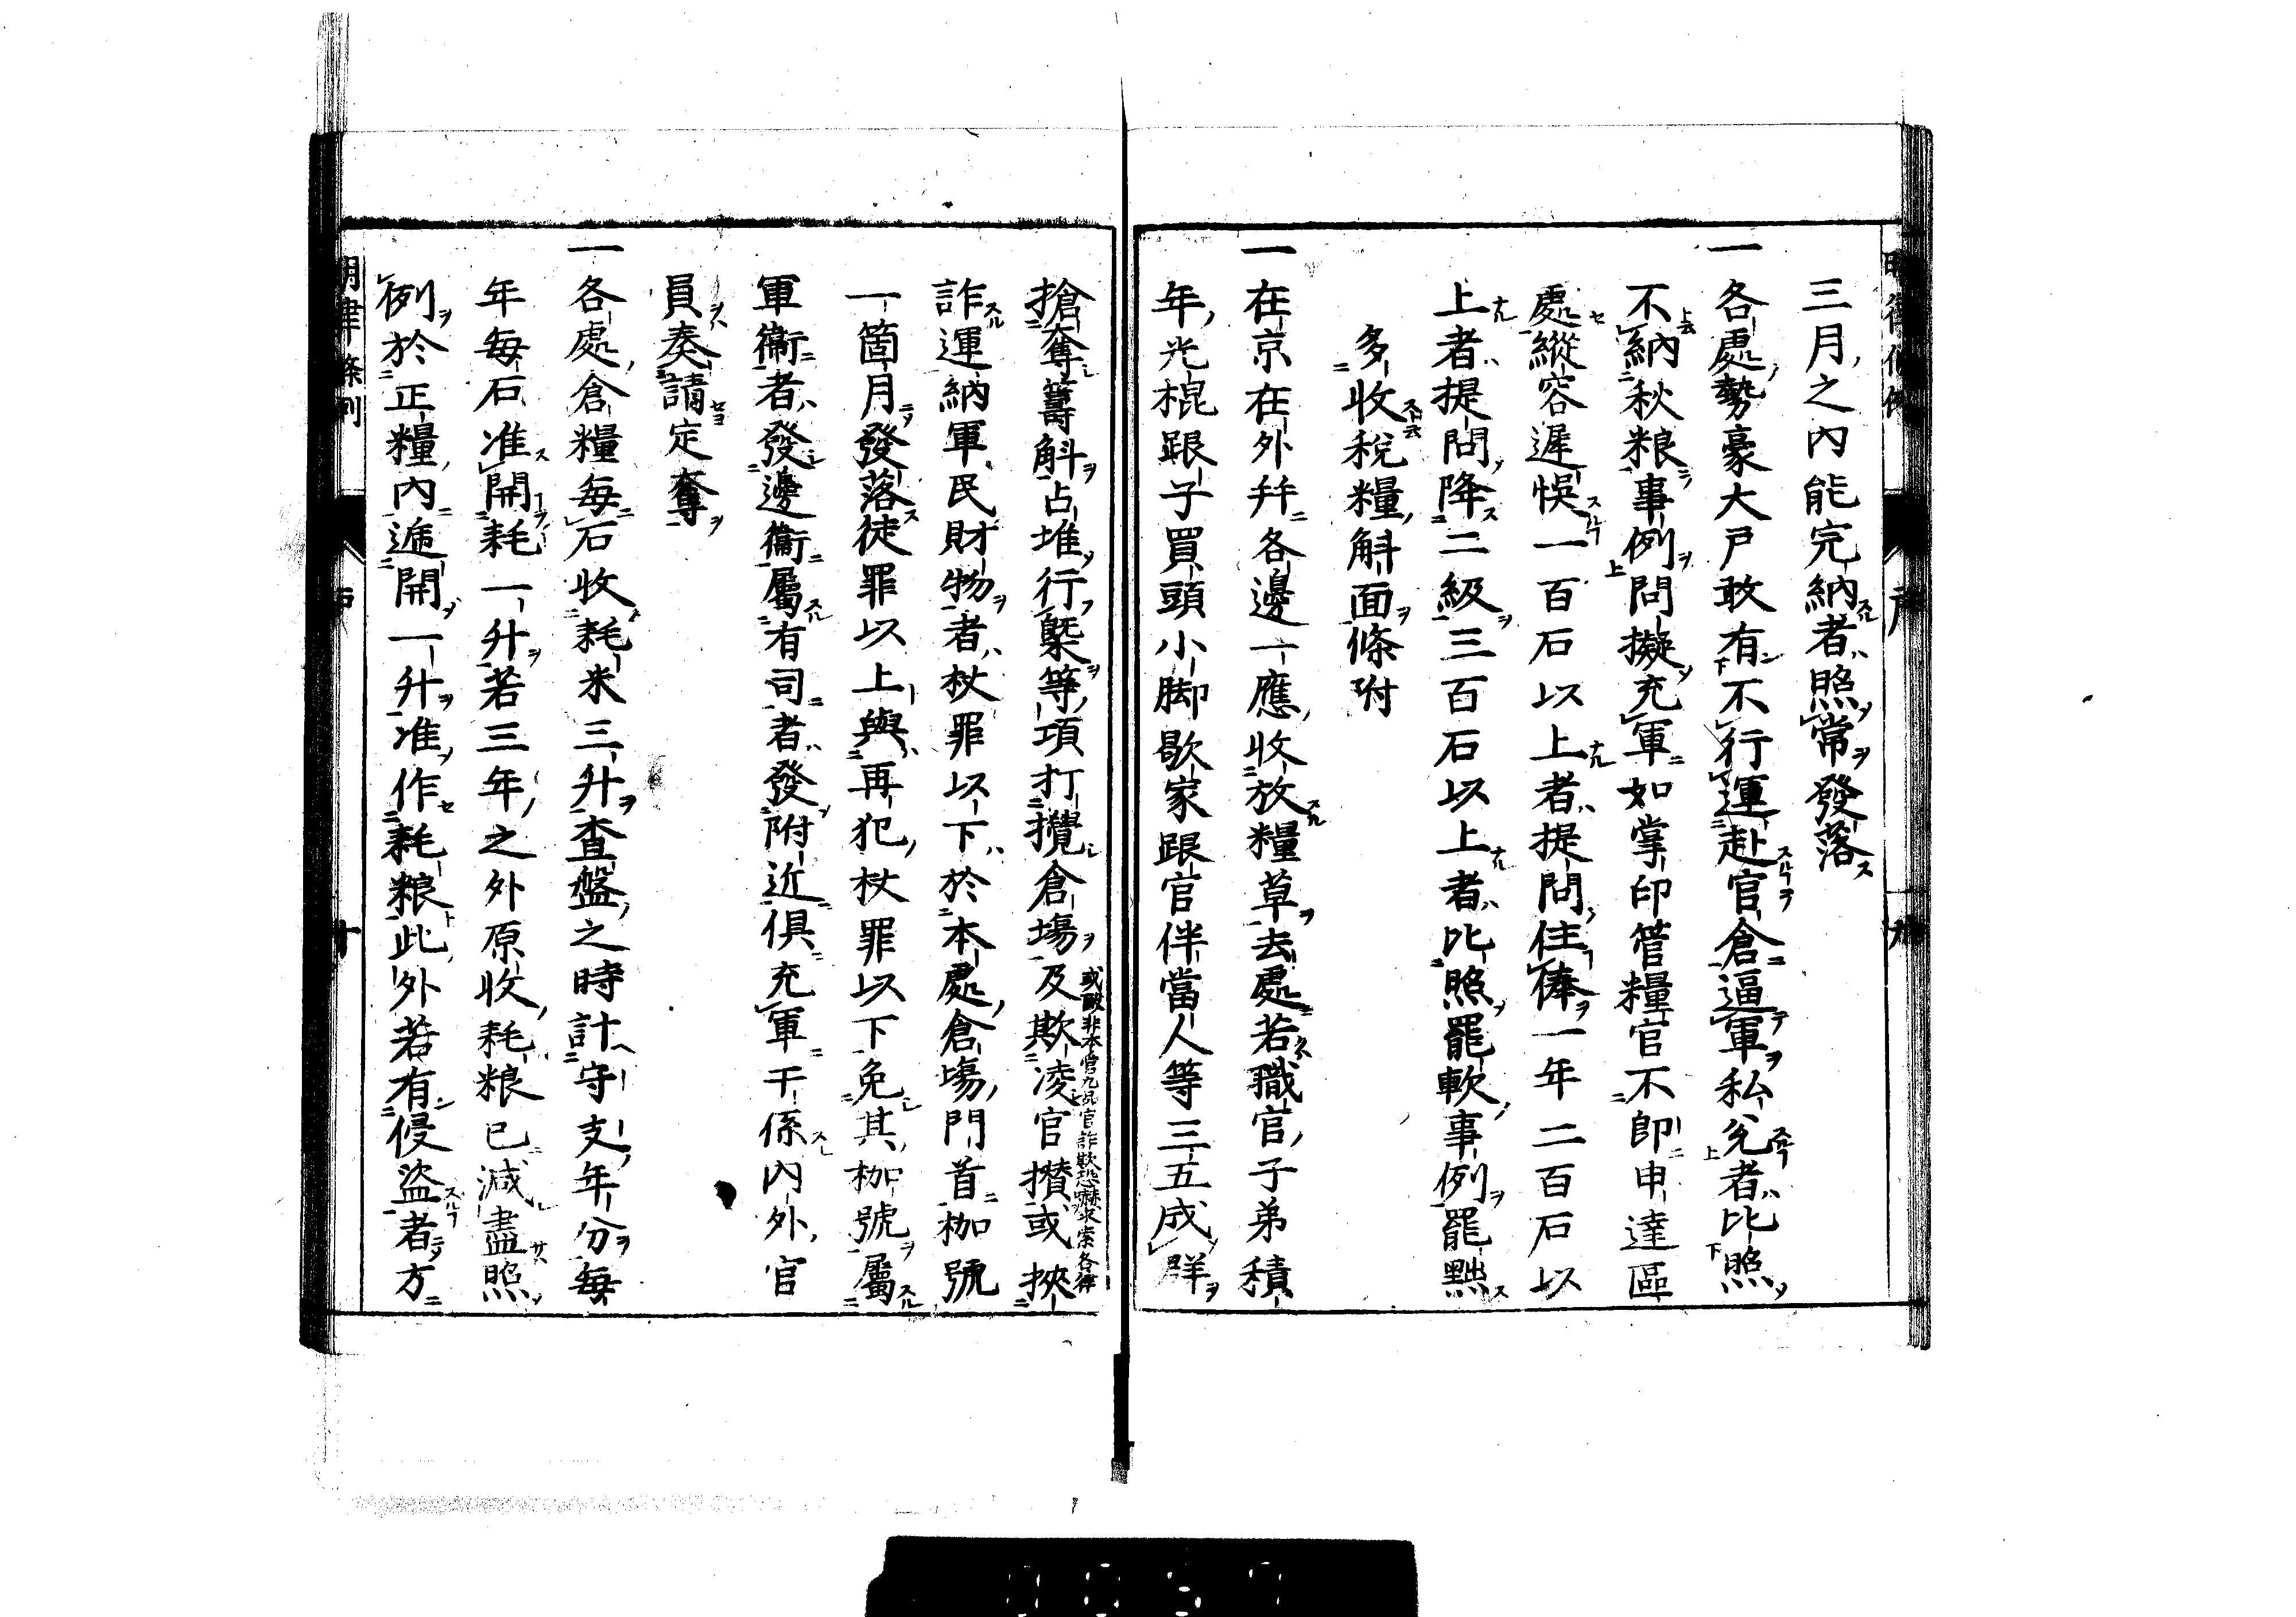 三月之內能完納者照常發落
一各處勢豪大戸敢有不行運赴官倉逼軍私兌者比照
不納秋粮事例問擬充軍如掌印管糧官不即申達區
處縱容遲悞一百石以上者提問住俸一年二百石以
上者提問降二級三百石以上者比照罷軟事例罷黜
多收稅糧斛面條附
一在京在外幷各邊一應收放糧草去處若職官子弟積
年光棍跟子買頭小脚歇家跟官伴當人等三五成群
搶奪籌斛占堆行槩等項打攪倉塲及欺凌官攢或挾
詐運納軍民財物者杖罪以下於本處倉塲門首枷號
一箇月發落徒罪以上與再犯杖罪以下免其枷號屬
軍衞者發邊衞屬有司者發附近俱充軍干係內外官
員奏請定奪
一各處倉糧每石收耗米三升査盤之時計守支年分每
年每石准開耗一升若三年之外原收耗粮已減盡照
例於正糧內遞開一升准作耗粮此外若有侵盜者方
明律條例